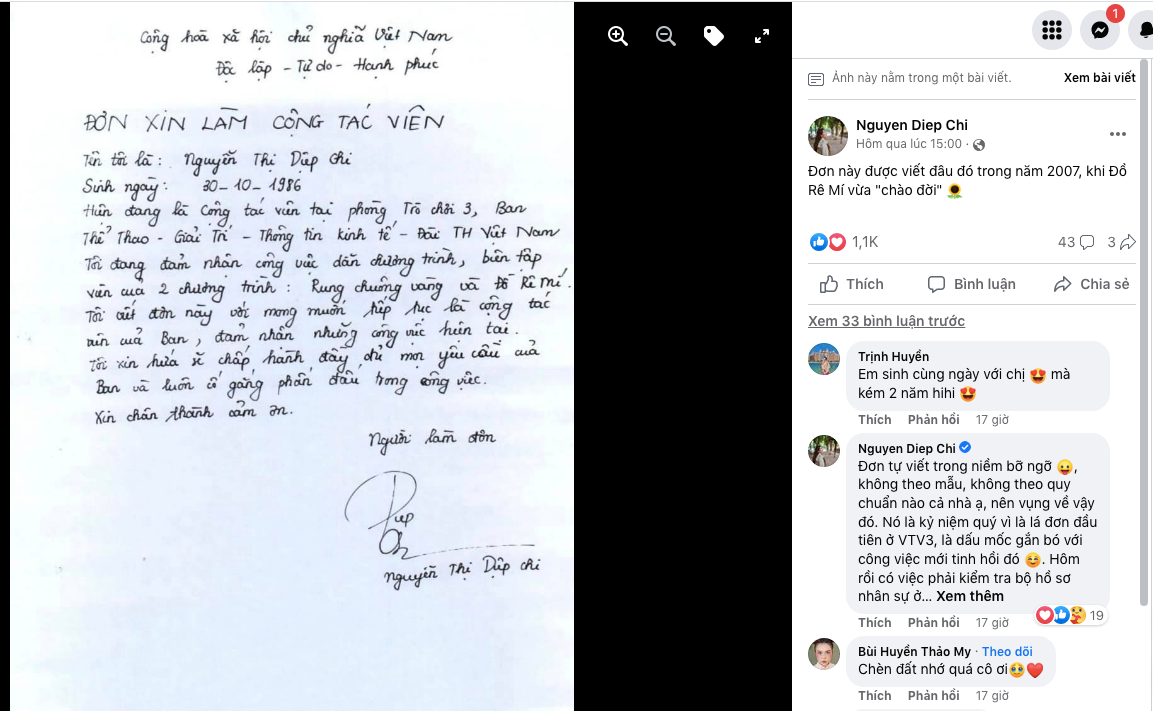 Cộng hoà xã hội chủ nghĩa Việt Nam
Độc lập - Tự do - Hạnh phúc
ĐƠN XIN LÀM CỘNG TÁC VIÊN
Tên tôi là : Nguyễn Thị Diệp Chi
Sinh ngày : 30-10-1986
Hiện đang là Cộng tác viên tại phòng Trò chơi 3, Ban
Thể Thao - Giải Trí - Thông tin kinh tế - Đài TH Việt Nam
Tôi đang đảm nhận công việc dẫn chương trình, biên tập
viên của 2 chương trình : Rung chuông vàng và Đồ Rê Mí.
Tôi viết đơn này với mong muốn tiếp tục là cộng tác
viên của Ban, đảm nhận những công việc hiện tại.
Tôi xin hứa sẽ chấp hành đầy đủ mọi yêu cầu của
Ban và luôn cố gắng phấn đấu trong công việc.
Xin chân thành cảm ơn.
Người làm đơn
Diệp
Chi
Nguyễn Thị Diệp Chi
1
Ảnh này nằm trong một bài viết.
Xem bài viết
Nguyen Diep Chi
Hôm qua lúc 15:00 ·
Đơn này được viết đâu đó trong năm 2007, khi Đồ
Rê Mí vừa "chào đời" 🌻
1,1K
43
3
Thích
Bình luận
Chia sẻ
Xem 33 bình luận trước
Trịnh Huyền
Em sinh cùng ngày với chị 😍 mà
kém 2 năm hihi 😍
Thích Phản hồi 17 giờ
Nguyen Diep Chi
Đơn tự viết trong niềm bỡ ngỡ 😛,
không theo mẫu, không theo quy
chuẩn nào cả nhà ạ, nên vụng về vậy
đó. Nó là kỷ niệm quý vì là lá đơn đầu
tiên ở VTV3, là dấu mốc gắn bó với
công việc mới tinh hồi đó ☺️. Hôm
rồi có việc phải kiểm tra bộ hồ sơ
nhân sự ở... Xem thêm
19
Thích Phản hồi 17 giờ
Bùi Huyền Thảo My · Theo dõi
Chèn đất nhớ quá cô ơi🥹❤️
Thích Phản hồi 17 giờ